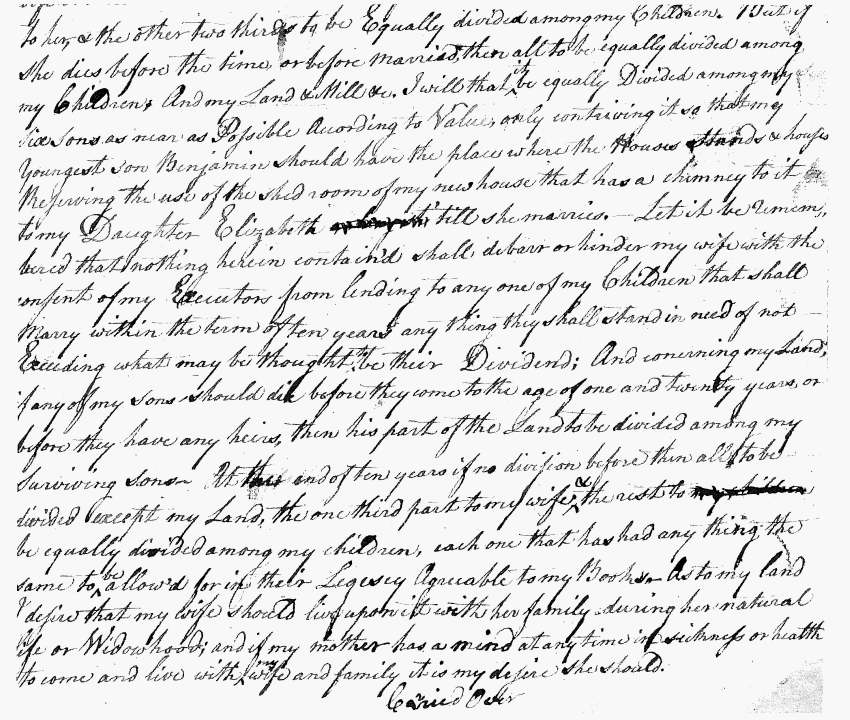 to her, & the other two thirds to be Equally divided among my Children. But if
she dies before the time, or before married, then all to be equally divided among
my Children; And my Land & Mill &c. I will that it be equally Divided among my
six sons as near as Possible According to Value, only contriving it so that my
Youngest son Benjamin should have the place where the Houses stands & houses
Reserving the use of the shed room of my new house that has a chimney to it
to my Daughter Elizabeth till she marries. — Let it be remem,,
bered that nothing herein contain'd shall debarr or hinder my wife with the
consent of my Executors from lending to any one of my Children that shall
Marry within the term of ten years any thing they shall stand in need of not
Exceeding what may be thought to be their Dividend; And conerning my Land,
if any of my sons should die before they come to the age of one and twenty years, or
before they have any heirs, then his part of the Land to be divided among my
Surviving sons— At the end of ten years if no division before then all to be
divided except my Land, the one third part to my wife & the rest to my children
be equally divided among my children, each one that has had any thing the
same to be allow'd for in their Legecey Agreeable to my Books. As to my land
I desire that my wife should live upon it with her family during her natural
life or Widowhood; and if my mother has a mind at any time in sickness or health
to come and live with my wife and family it is my desire she should.
Carried Over